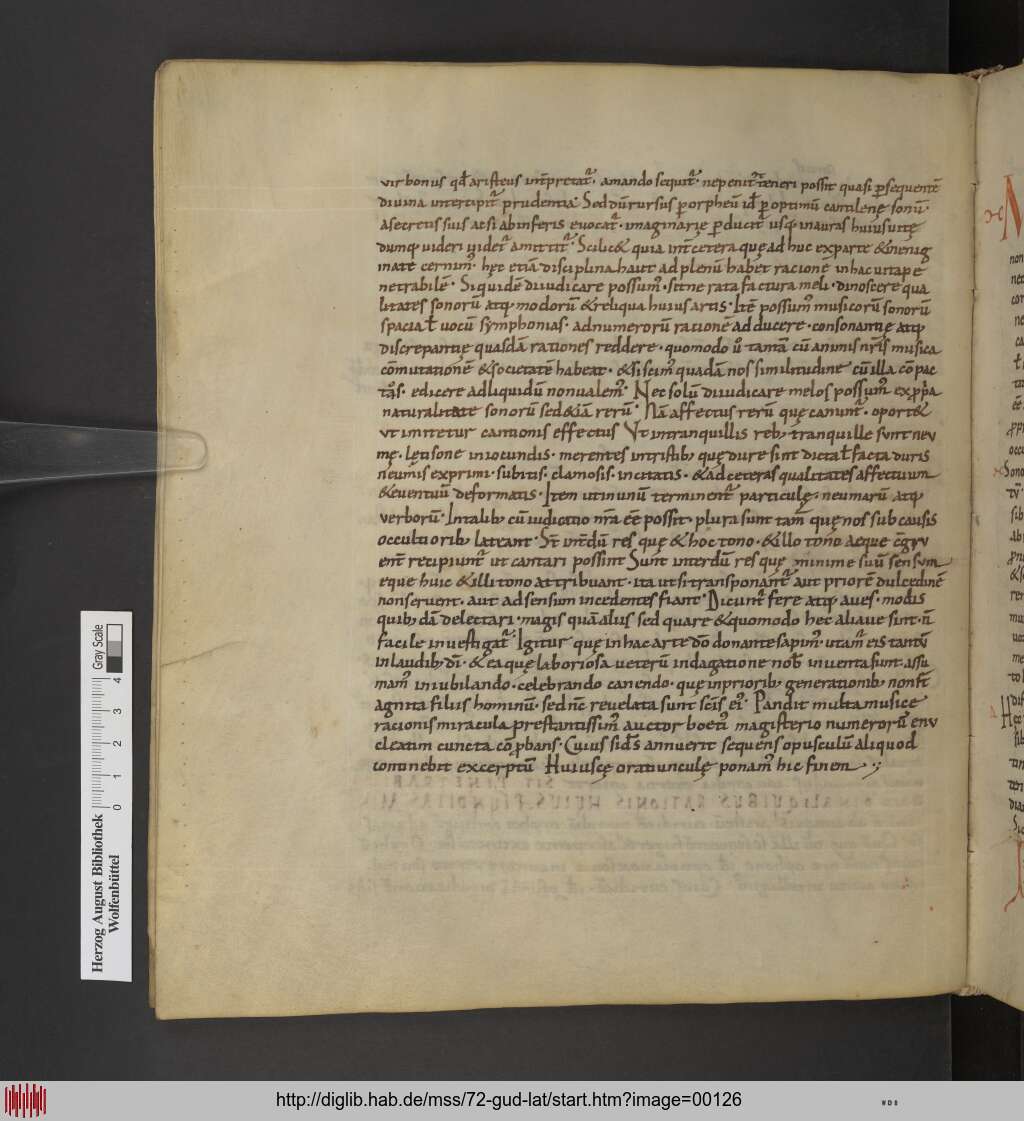 vir bonus qđ aristeus int̄pretat᷑· amando sequit᷑· ne penit᷑ teneri possit quasi p̱ sequentē
divina intercipit᷑ prudentia· Sed dū rursus p̱ orpheū id ē p̱ optimū cantilenę sonū·
a secretis suis ac si ab inferis evocat᷑· imaginarię p̱ducit᷑ usq; in auras huius uitę
dumq; uideri uidet᷑ amittit᷑· Scilic& quia int̄ cetera quę ad huc ex parte & in enig
mate cernim᷒· hęc etiā disciplina haut ad plenū habet racionē in hac uita pe
netrabilē· Siquidē diiudicare possum᷒· sit ne rata factura meli· dinoscere qua
litates sonorū atq; modorū & reliqua huius artis· Itē possum᷒ musicorū sonorū
spacia ł vocū symphonias· ad numerorū racionē adducere· consonantię atq;
discrepantię quasdā rationes reddere· quomodo ů tantā cū animis nr̄is musica
cōmutationē & societatē habeat· & si scim᷒ quadā nos similitudine cū illa cōpac
tos· edicere ad liquidū non ualem᷒· Nec solū diiudicare melos possum᷒ ex pp̄a
naturalitate sonorū sed &iā rerū· Nā affectus rerū quę canunt᷑· oport&
ut imitetur cantionis effectus Ut in tranquillis reb; tranquille sunt neu
mę· lętisonę in iocundis· merentes in tristib; quę dure sint dicta ł facta duris
neumis exprimi· subitis· clamosis· incitatis· & ad ceteras qualitates affectuum
& euentuū deformatis· Item ut in unū terminent᷑ particulę· neumarū atq;
verborū· In talib; cū iudicatio nr̄a ēē possit· plura sunt tam̄ quę nos sub causis
occultiorib; lateant· St̄ int̄dū res quę & hoc tono· & illo tono aeque c̄gru
ent᷑ recipiunt᷑ ut cantari possint Sunt interdū res quę minime suū sensum
eque huic & illi tono attribuant· ita ut si transponant᷑ aut priorē dulcedinē
non seruent· aut ad sensum incedentes fiant· Dicunt᷑ fere atq; aues· modis
quib; dā delectari· magis quā aliis sed quare & quomodo hec aliaue sint· n̄
facile inuestigat᷑· Igitur quę in hac arte dō donante sapim᷒· utam᷑ eis tantū
in laudib; dī· & ea quę laboriosa ueterū indagatione nob̄ inuenta sunt· assu
mam᷒ in iubilando· celebrando canendo· quę in priorib; generationib; non st̄
agnita filiis hominū· sed nc̄ reuelata sunt scīs ei᷒· Pandit multa musicę
racionis miracula prestantissim᷒ auctor boeti᷒ magisterio numerorū enu
cleatim cuncta cōp̱bans· Cuius si dīs annuerit sequens opusculū aliquod
continebit excerptū Huiuscę oratiunculę ponam᷒ hic finem·
Herzog August Bibliothek
Wolfenbüttel
Gray Scale
0 1 2 3 4
http://diglib.hab.de/mss/72-gud-lat/start.htm?image=00126